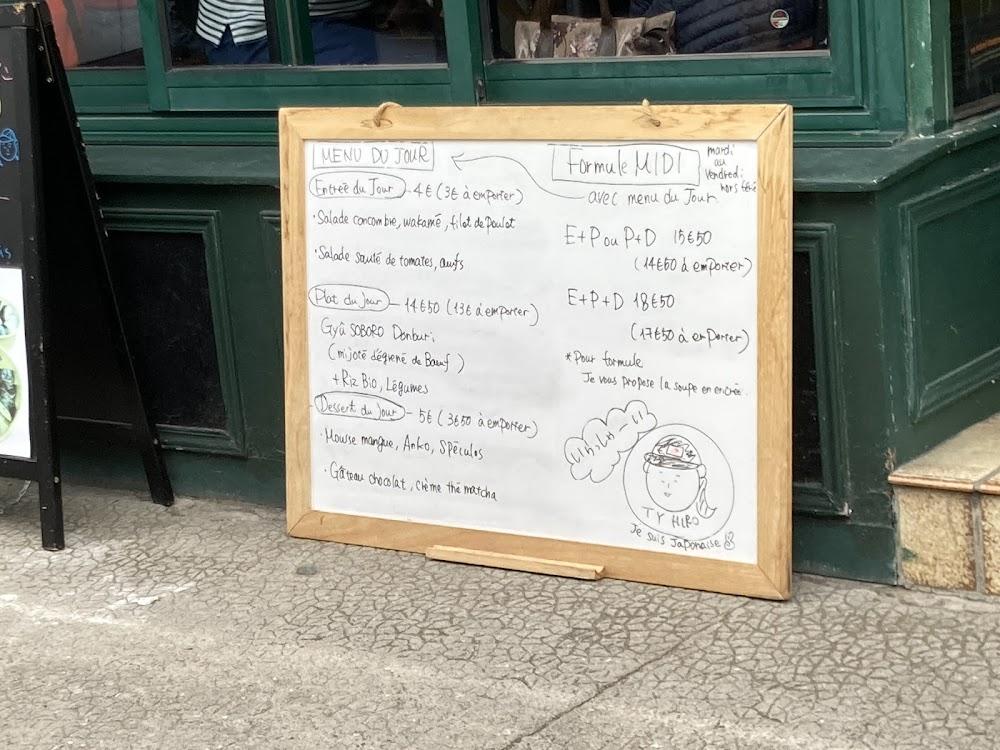 MENU DU JOUR
Entrée du Jour - 4€ (3€ à emporter)
· Salade concombre, wakamé, filet de Poulet
· Salade sauté de tomates, œufs
Plat du Jour - 14€50 (13€ à emporter)
Gyû SOBORO Donburi
(mijoté d'égrené de Bœuf)
+ Riz Bio, Légumes
Dessert du Jour - 5€ (3€50 à emporter)
· Mousse mangue, Anko, Spéculos
· Gâteau chocolat, crème thé matcha
Formule MIDI
mardi
au
Vendredi
hors férié
avec menu du Jour
E+P ou P+D 15€50
(14€50 à emporter)
E+P+D 18€50
(17€50 à emporter)
* Pour formule
Je vous propose la soupe en entrée.
TY HIRO
Je suis Japonaise